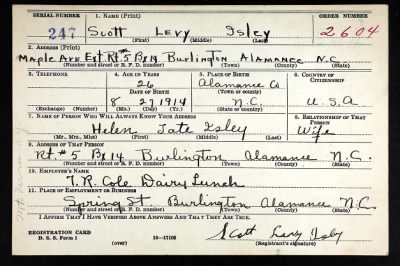 SERIAL NUMBER 1. Name (Print) ORDER NUMBER
247 Scott Levy Isley 2604
(First) (Middle) (Last)
2. Address (Print)
Maple Ave Ext Rt. #5 Bx 14 Burlington Alamance N.C.
(Number and street or R. F. D. number) (Town) (County) (State)
3. Telephone 4. Age in Years 5. Place of Birth 6. Country of Citizenship
26 Alamance Co
Date of Birth (Town or county)
8 27 1914 N.C. U.S.A
(Exchange) (Number) (Mo.) (Day) (Yr.) (State or country)
7. Name of Person Who Will Always Know Your Address 8. Relationship of That Person
Helen Tate Isley Wife
(Mr., Mrs., Miss) (First) (Middle) (Last)
9. Address of That Person
Rt. #5 Bx 14 Burlington Alamance N.C.
(Number and street or R. F. D. number) (Town) (County) (State)
10. Employer's Name
T.R. Cole Dairy Lunch
11. Place of Employment or Business
Spring St. Burlington Alamance N.C.
(Number and street or R. F. D. number) (Town) (County) (State)
I Affirm That I Have Verified Above Answers and That They Are True.
REGISTRATION CARD
D. S. S. Form 1 (over) 16—17105 Scott Levy Isley
(Registrant's signature)